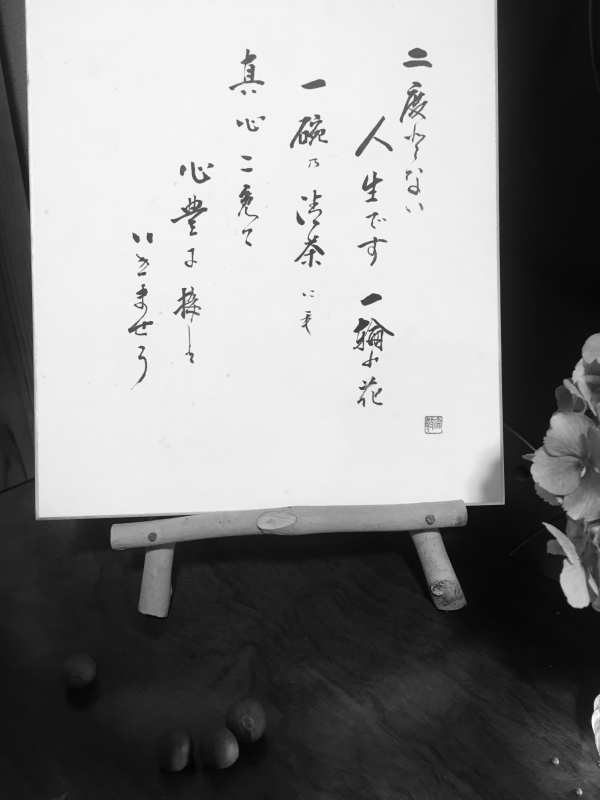 二度とない
人生です 一輪の花
一碗乃清茶にも
真心こ�めて
心豊に接して
いきませう